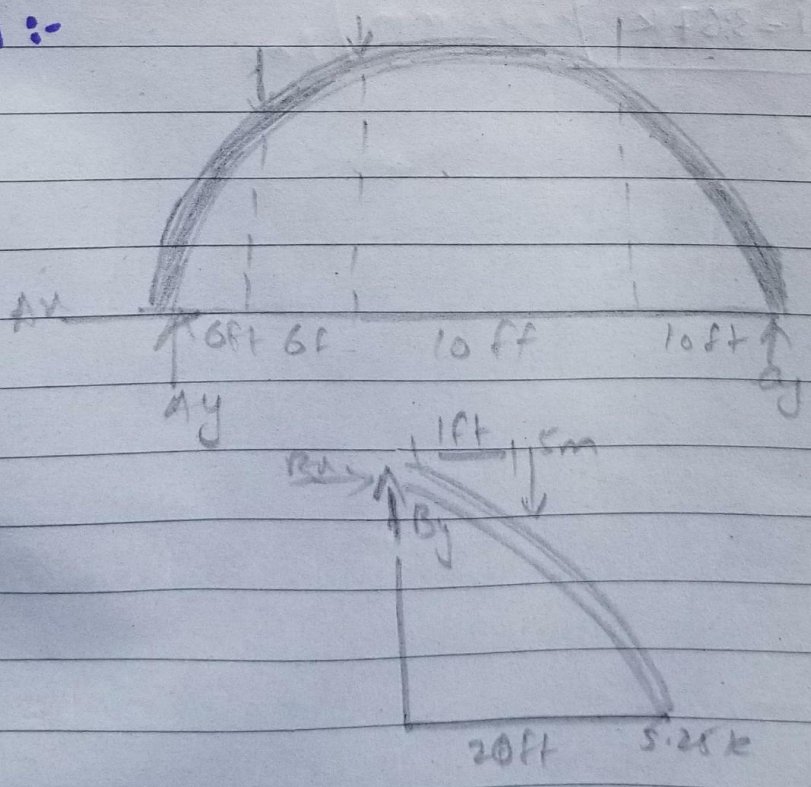 :-
Ax
6ft 6f 10 ft 10ft
Ay
1ft 5m
Bx
By
20ft 5.25 k